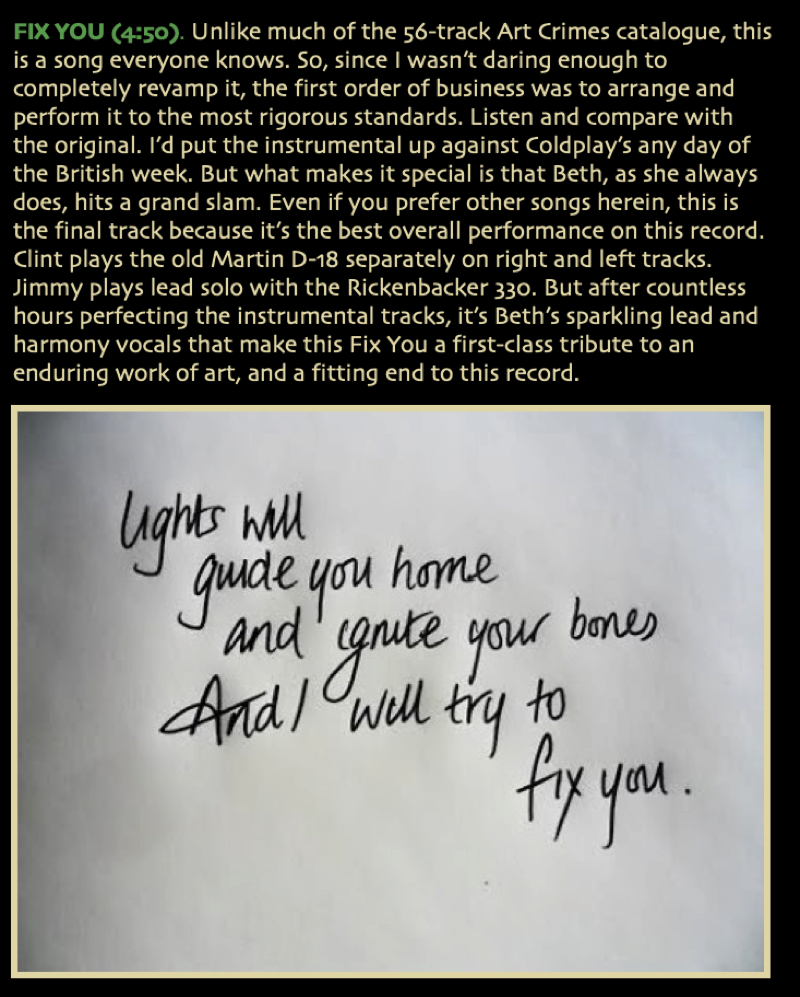 FIX YOU (4:50). Unlike much of the 56-track Art Crimes catalogue, this
is a song everyone knows. So, since I wasn't daring enough to
completely revamp it, the first order of business was to arrange and
perform it to the most rigorous standards. Listen and compare with
the original. I'd put the instrumental up against Coldplay's any day of
the British week. But what makes it special is that Beth, as she always
does, hits a grand slam. Even if you prefer other songs herein, this is
the final track because it's the best overall performance on this record.
Clint plays the old Martin D-18 separately on right and left tracks.
Jimmy plays lead solo with the Rickenbacker 330. But after countless
hours perfecting the instrumental tracks, it's Beth's sparkling lead and
harmony vocals that make this Fix You a first-class tribute to an
enduring work of art, and a fitting end to this record.
Lights will
guide you home
and ignite your bones
And I will try to
fix you.